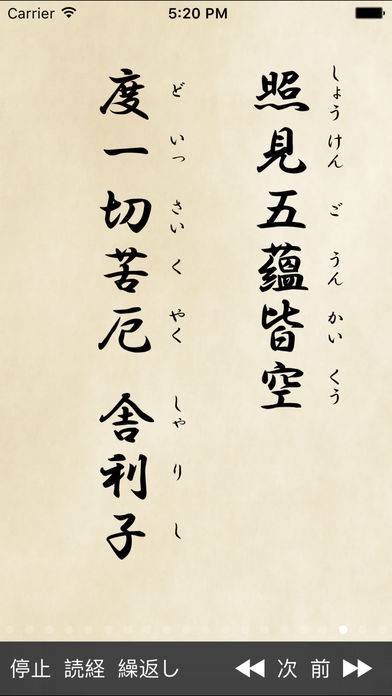 Carrier 5:20 PM
照見五蘊皆空
しょう けん ご うん かい くう
度一切苦厄 舎利子
ど いっ さい く やく しゃ り し
停止 読経 繰返し 次 前